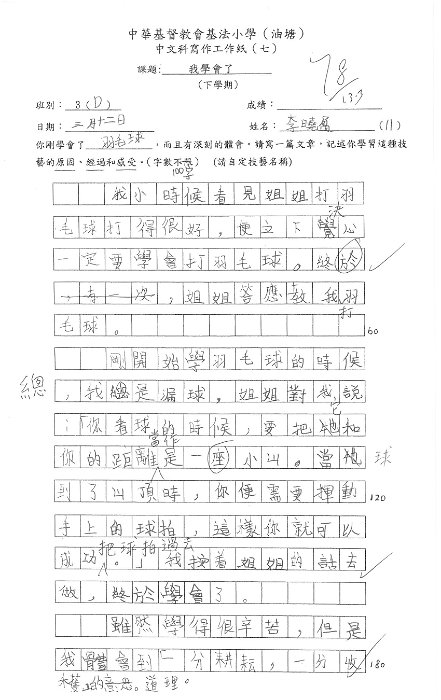 中華基督教會基法小學（油塘）
中文科寫作工作紙（七）
課題： 我學會了
（下學期）
78
班別： 3(D) 成績：
日期： 三月十二日 姓名： (11)
你剛學會了 羽毛球 ，而且有深刻的體會。請寫一篇文章，記述你學習這種技
藝的原因、經過和感受。（字數不限）（請自定技藝名稱）
100字
我小時候看見姐姐打羽
毛球打得很好，便立下決心
一定要學會打羽毛球。終於
，有一次，姐姐答應教我打羽
毛球。
60
剛開始學羽毛球的時候
總
，我總是漏球。姐姐對我說
：「你看球的時候，要把它和
你的距離當作是一座小山。當球
到了山頂時，你便需要揮動
120
手上的球拍，這樣你就可以
把球拍過去
成功。」我按着姐姐的話去
做，終於學會了。
雖然學得很辛苦，但是
我體會到「一分耕耘，一分收
180
穫」的意思。道理。